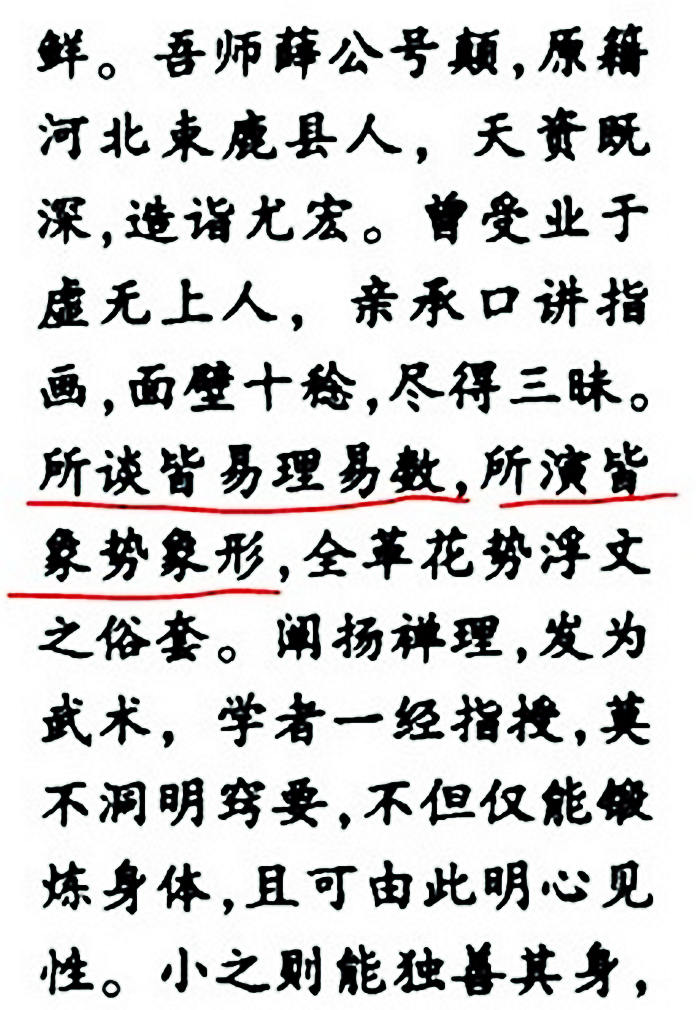 鲜。吾师薛公号颠,原籍
河北束鹿县人，天资既
深,造诣尤宏。曾受业于
虚无上人，亲承口讲指
画,面壁十稔,尽得三昧。
所谈皆易理易数,所演皆
象势象形,全革花势浮文
之俗套。阐扬禅理,发为
武术，学者一经指授,莫
不洞明窍要,不但仅能锻
炼身体,且可由此明心见
性。小之则能独善其身，